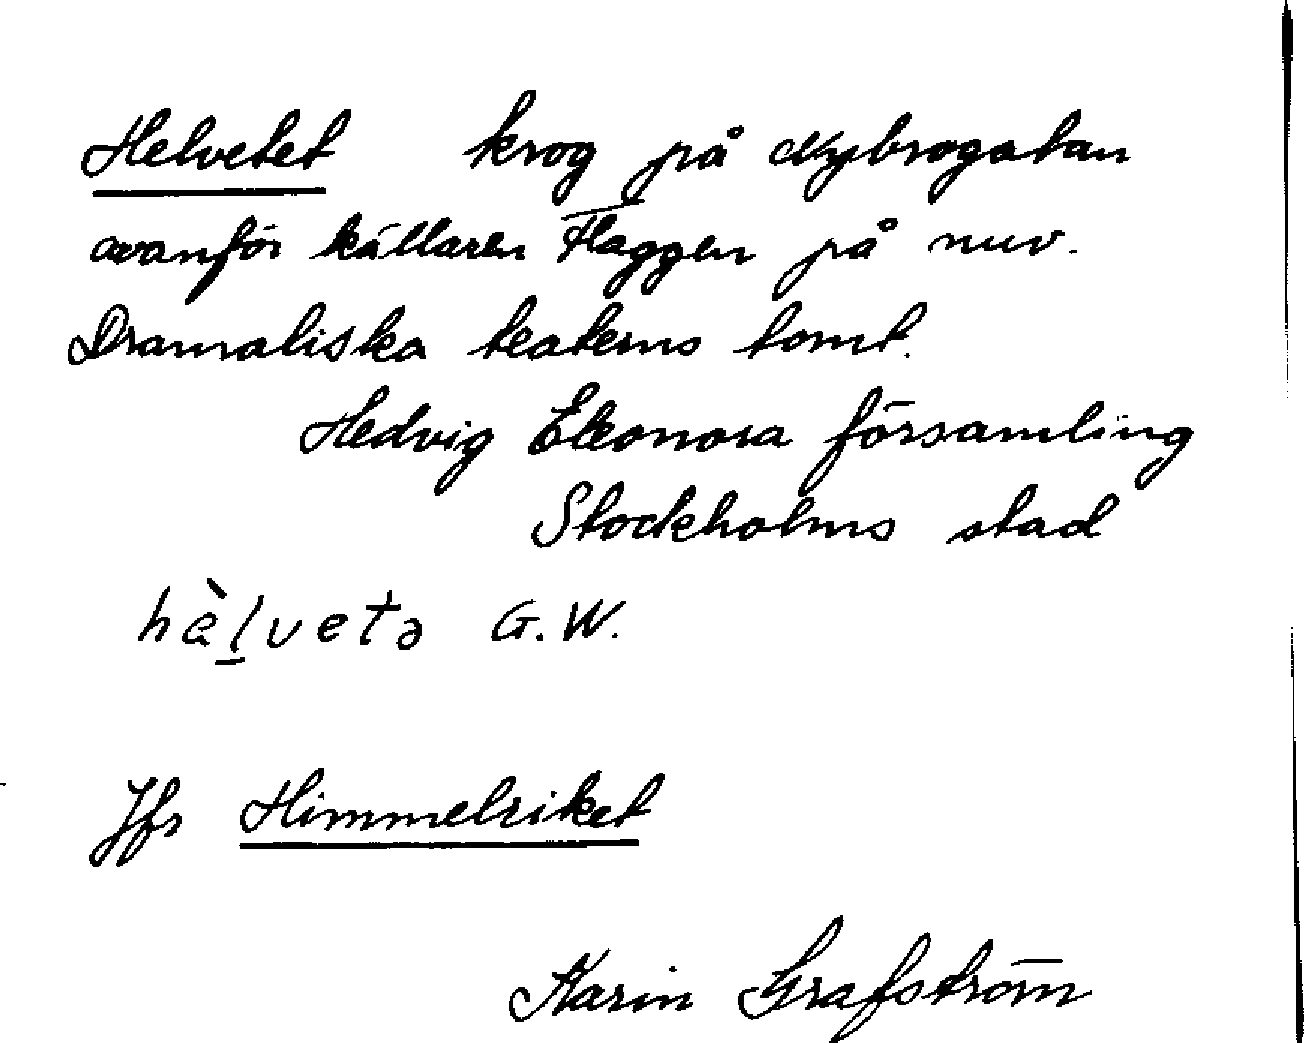 Helvetet krog på Nybrogatan
ovanför källaren Flaggen på nuv.
Dramatiska teaterns tomt.
Hedvig Eleonora församling
Stockholms stad
hèl̠vetə G.W.
Jfr Himmelriket
Karin Grafström